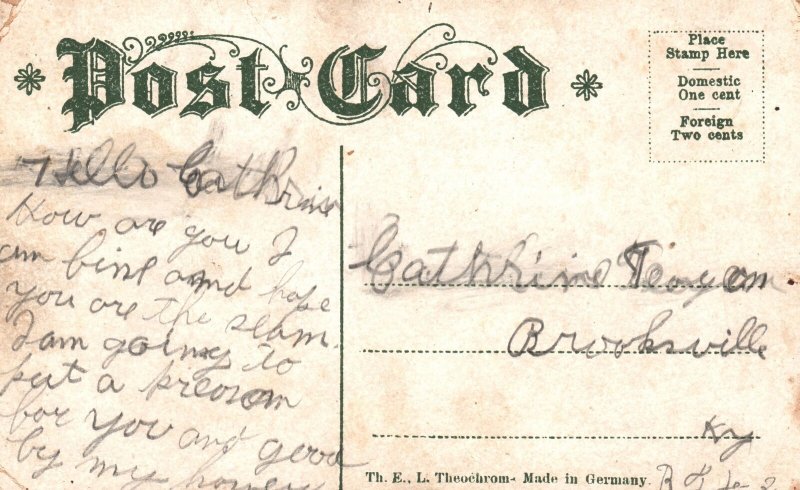 Post Card
Place
Stamp Here
Domestic
One cent
Foreign
Two cents
Hello Cathrine
How are you I
am bine annd hope
you are the slam.
I am going to
put a
bor you and good
by my honey
Cathrine
Brooksville
Ky
Th. E., L. Theochrom- Made in Germany.